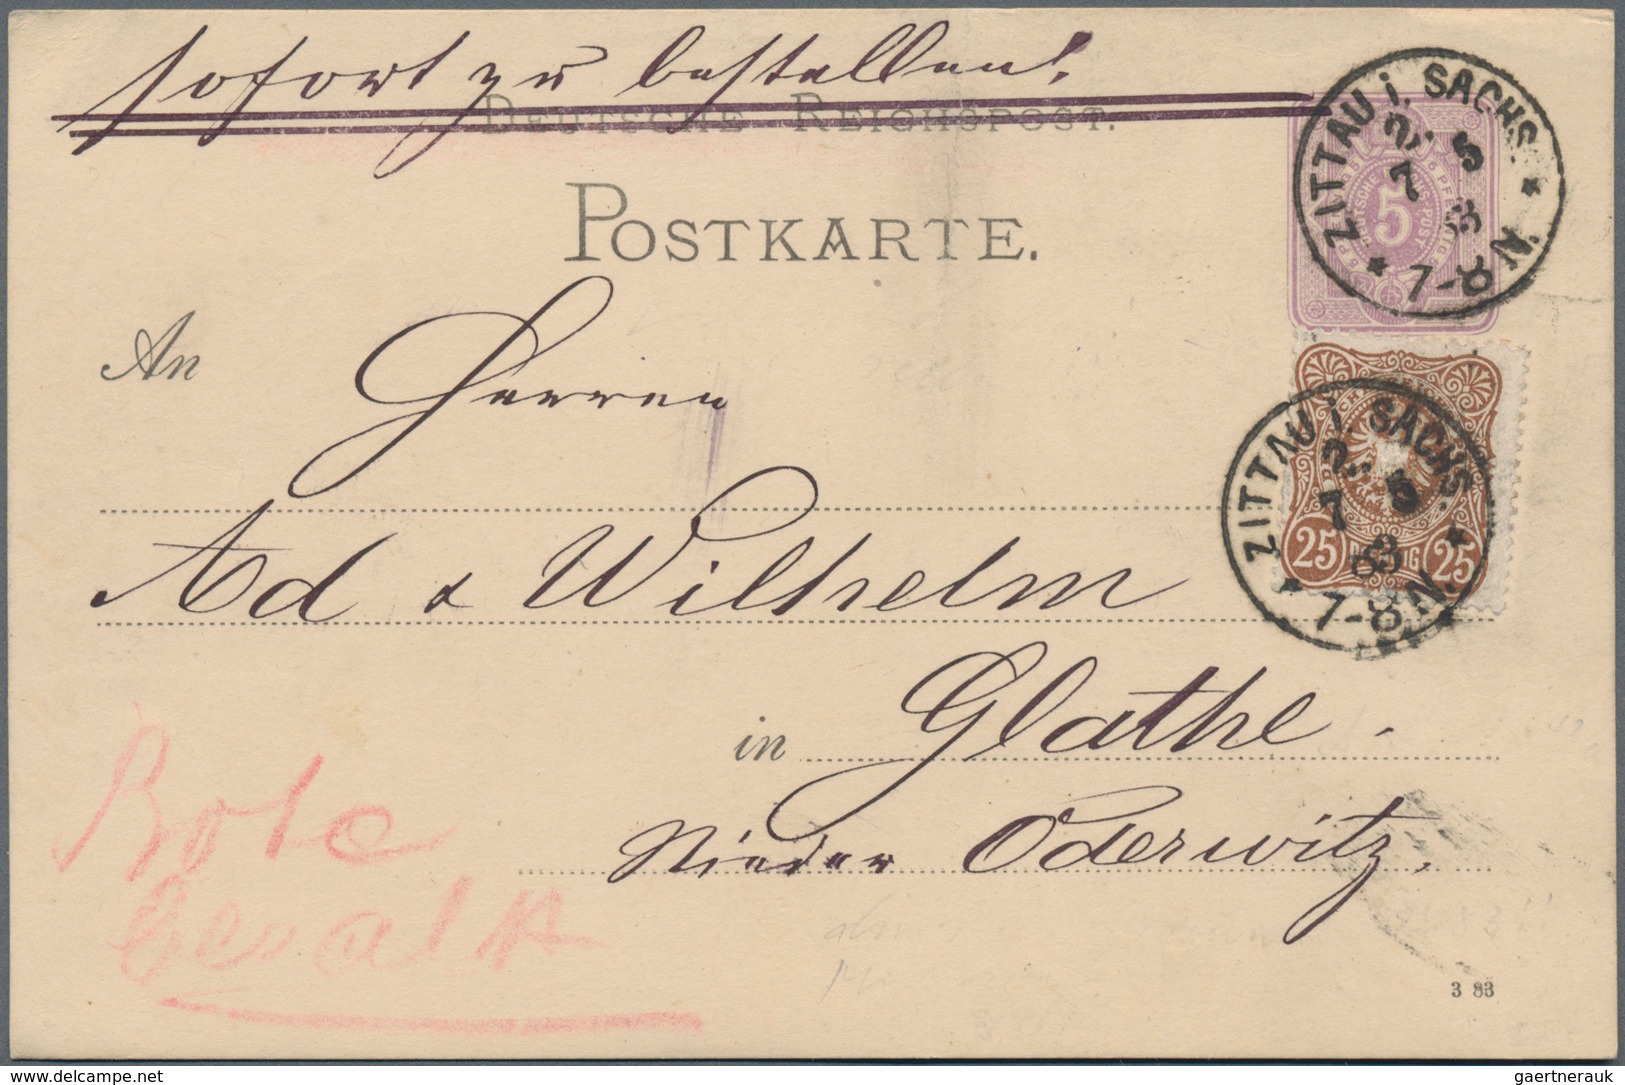 sofort zu bestellen!
DEUTSCHE REICHSPOST.
POSTKARTE.
ZITTAU i. SACHS.
2 5
7 83
7-8 N.
5
An Herren
25 25
ZITTAU i. SACHS.
2 5
7 83
7-8 N.
Ad & Wilhelm
in Glathe.
Nieder Oderwitz.
Bote
bezahlt
3 83
www.delcampe.net
gaertnerauk